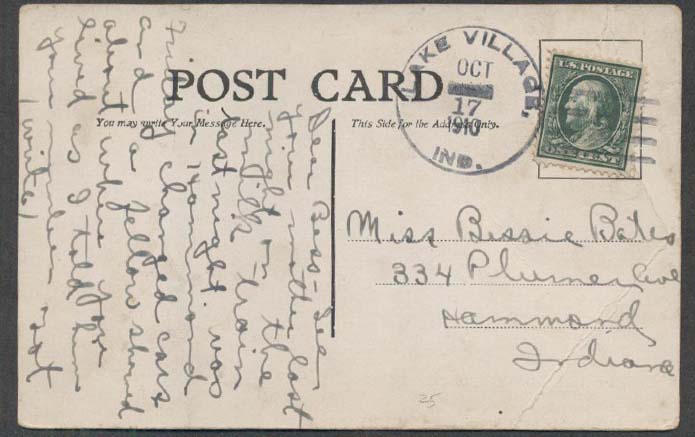 POST CARD
You may write Your Message Here.
This Side for the Address Only.
LAKE VILLAGE,
OCT
17
1910
IND.
U.S. POSTAGE
CENT
Miss Bessie Bates
334 Plumer Ave
Hammond
Indiana
Dear Bess - See
your mother last
night on the
milk train
last night. was
in Hammond
Friday changed cars
and a fellow shared
about where you
lived as I told him
your number not
(write)
25